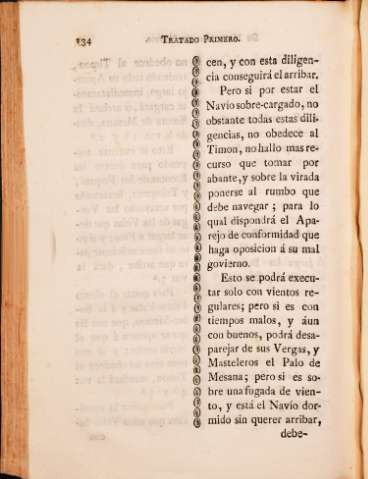 134 TRATADO PRIMERO.
cen, y con esta diligen-
cia conseguirá el arribar.
Pero si por estar el
Navio sobre-cargado, no
obstante todas estas dili-
gencias, no obedece al
Timon, no hallo mas re-
curso que tomar por
abante, y sobre la virada
ponerse al rumbo que
debe navegar ; para lo
qual dispondrá el Apa-
rejo de conformidad que
haga oposicion á su mal
govierno.
Esto se podrá execu-
tar solo con vientos re-
gulares; pero si es con
tiempos malos, y áun
con buenos, podrá desa-
parejar de sus Vergas, y
Masteleros el Palo de
Mesana; pero si es so-
bre una fugada de vien-
to, y está el Navío dor-
mido sin querer arribar,
debe-